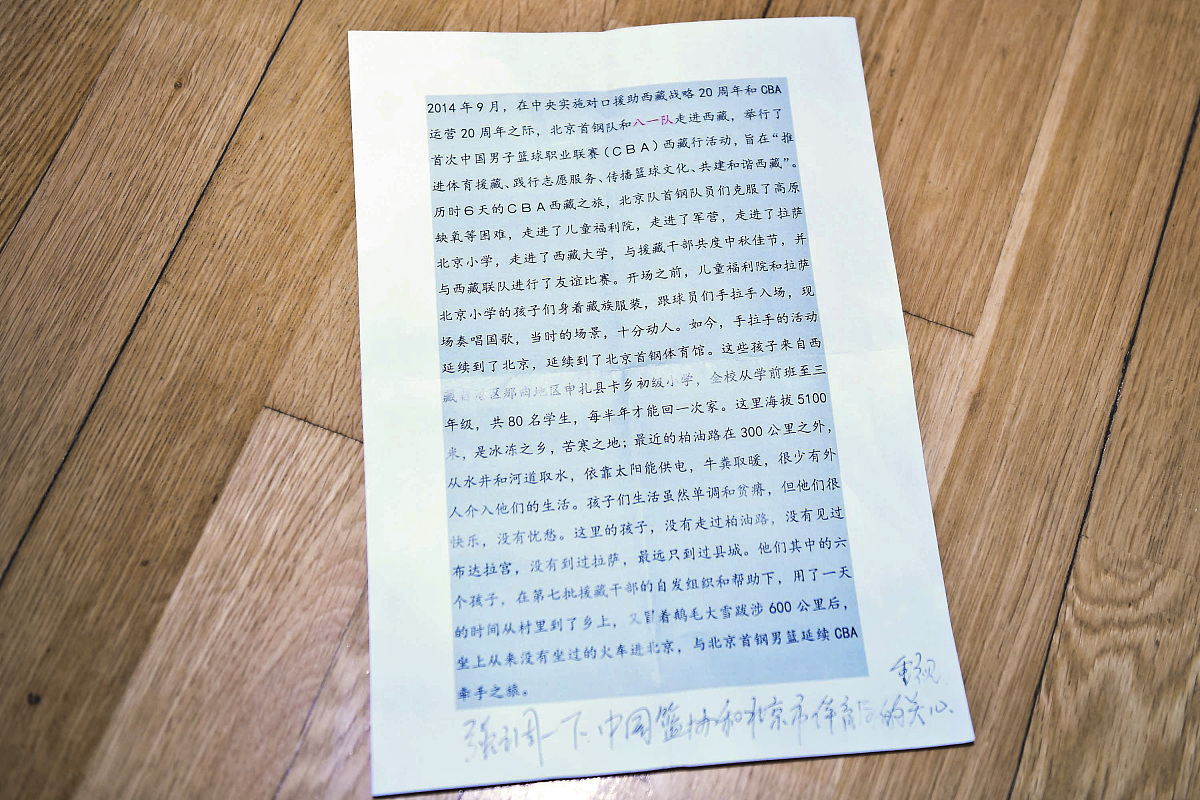 2014年9月，在中央实施对口援助西藏战略20周年和CBA
运营20周年之际，北京首钢队和八一队走进西藏，举行了
首次中国男子篮球职业联赛（CBA）西藏行活动，旨在“推
进体育援藏、践行志愿服务、传播篮球文化、共建和谐西藏”。
历时6天的CBA西藏之旅，北京队首钢队员们克服了高原
缺氧等困难，走进了儿童福利院，走进了军营，走进了拉萨
北京小学，走进了西藏大学，与援藏干部共度中秋佳节，并
与西藏联队进行了友谊比赛。开场之前，儿童福利院和拉萨
北京小学的孩子们身着藏族服装，跟球员们手拉手入场，现
场奏唱国歌，当时的场景，十分动人。如今，手拉手的活动
延续到了北京，延续到了北京首钢体育馆。这些孩子来自西
藏自治区那曲地区申扎县卡乡初级小学，全校从学前班至三
年级，共80名学生，每半年才能回一次家。这里海拔5100
米，是冰冻之乡，苦寒之地；最近的柏油路在300公里之外，
从水井和河道取水，依靠太阳能供电，牛粪取暖，很少有外
人介入他们的生活。孩子们生活虽然单调和贫瘠，但他们很
快乐，没有忧愁。这里的孩子，没有走过柏油路，没有见过
布达拉宫，没有到过拉萨，最远只到过县城。他们其中的六
个孩子，在第七批援藏干部的自发组织和帮助下，用了一天
的时间从村里到了乡上，又冒着鹅毛大雪跋涉600公里后，
坐上从来没有坐过的火车进北京，与北京首钢男篮延续CBA
牵手之旅。
重视
强调一下中国篮协和北京市体育局的关心